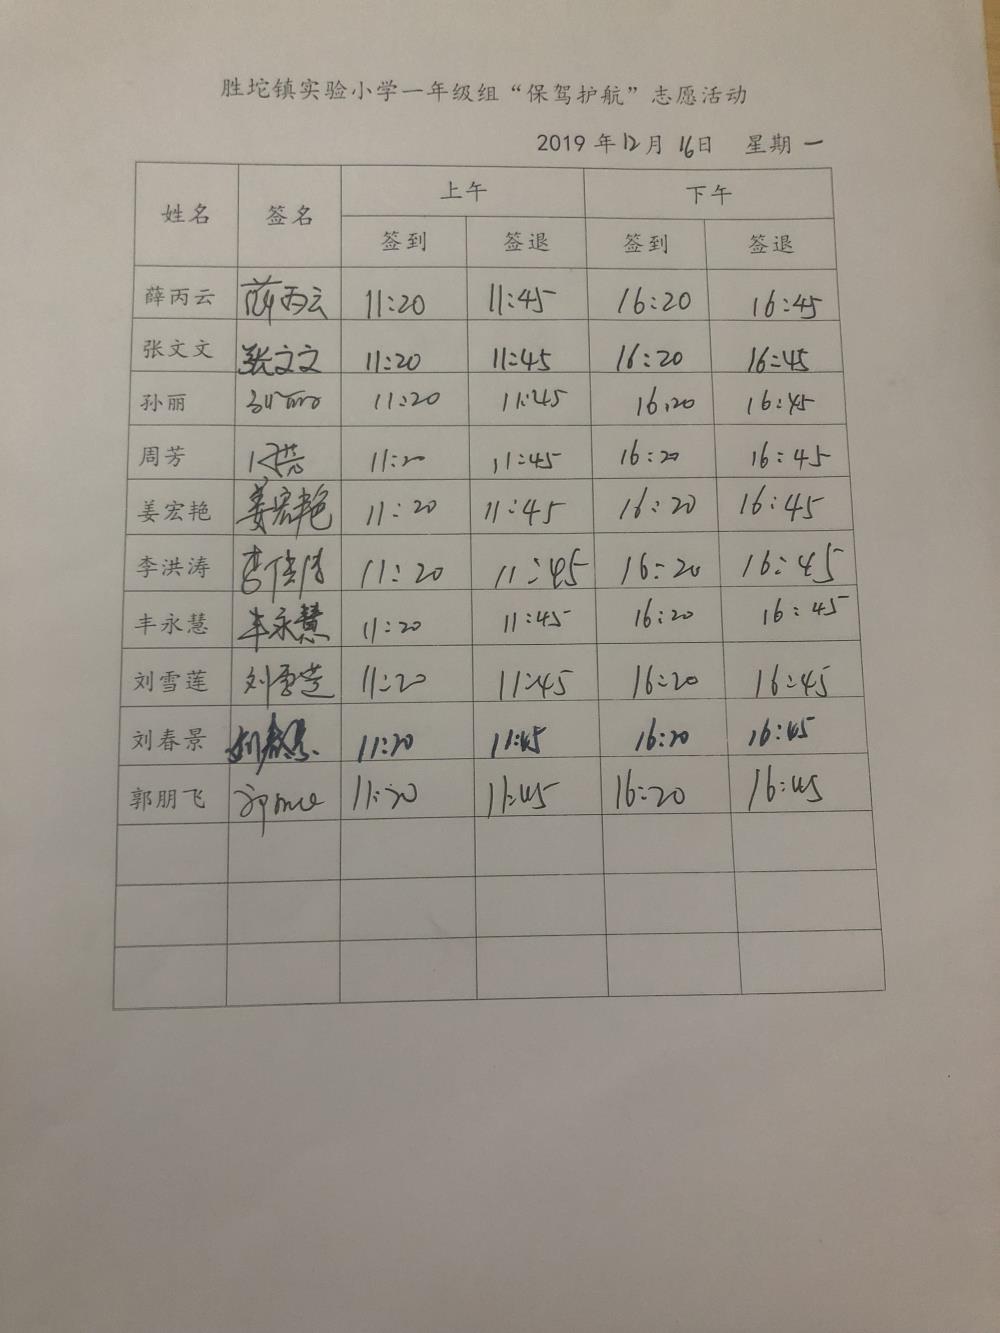 胜坨镇实验小学一年级组“保驾护航”志愿活动
2019 年 12 月 16 日 星期 一
姓名 签名 上午 下午
签到 签退 签到 签退
薛丙云 薛丙云 11:20 11:45 16:20 16:45
张文文 张文文 11:20 11:45 16:20 16:45
孙丽 孙丽 11:20 11:45 16:20 16:45
周芳 11:20 11:45 16:20 16:45
姜宏艳 姜宏艳 11:20 11:45 16:20 16:45
李洪涛 李洪涛 11:20 11:45 16:20 16:45
丰永慧 丰永慧 11:20 11:45 16:20 16:45
刘雪莲 刘雪莲 11:20 11:45 16:20 16:45
刘春景 刘春景 11:20 11:45 16:20 16:45
郭朋飞 11:20 11:45 16:20 16:45